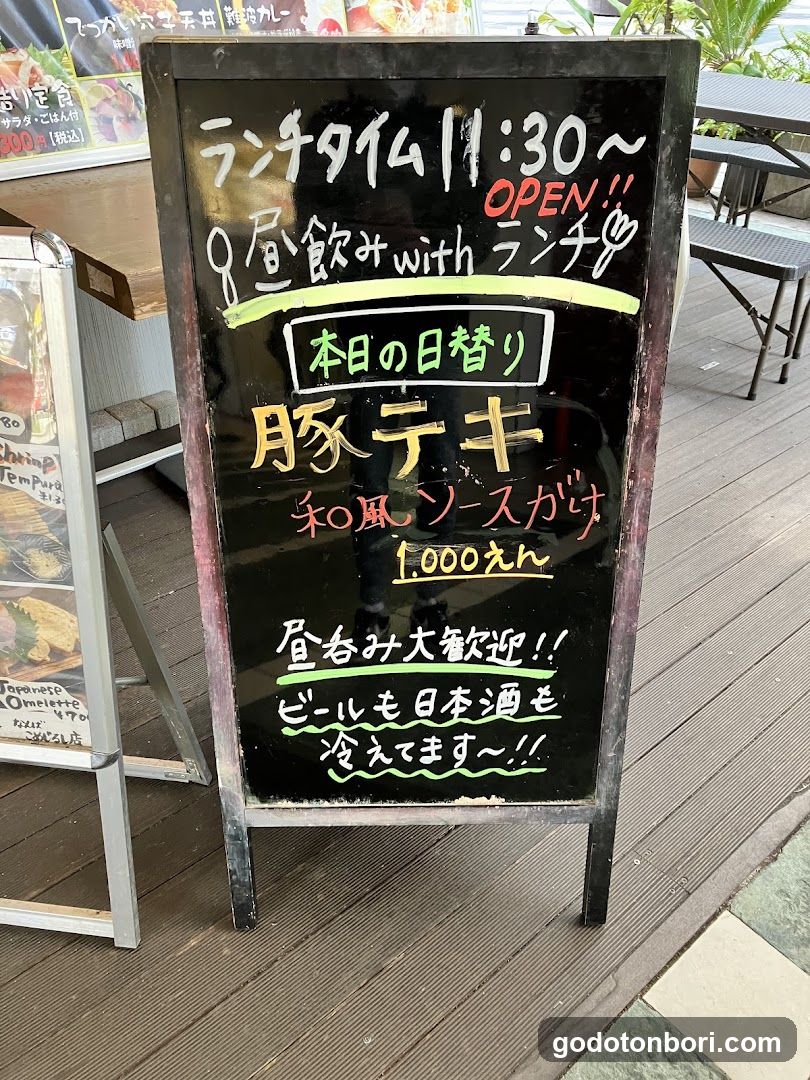 でっかい穴子天丼 難波カレー
造り定食
サラダ・ごはん付
300円【税込】
ランチタイム 11:30～
OPEN!!
昼飲み with ランチ
本日の日替り
豚テキ
和風ソースがけ
1.000えん
昼呑み大歓迎!!
ビールも日本酒も
冷えてます～!!
80
Shrimp
Tempura
Japanese
Omelette
¥70
なんば
こめじるし店
godotonbori.com